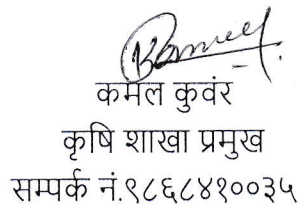 कमल कुवंर
कृषि शाखा प्रमुख
सम्पर्क नं.९८६८४१००३५